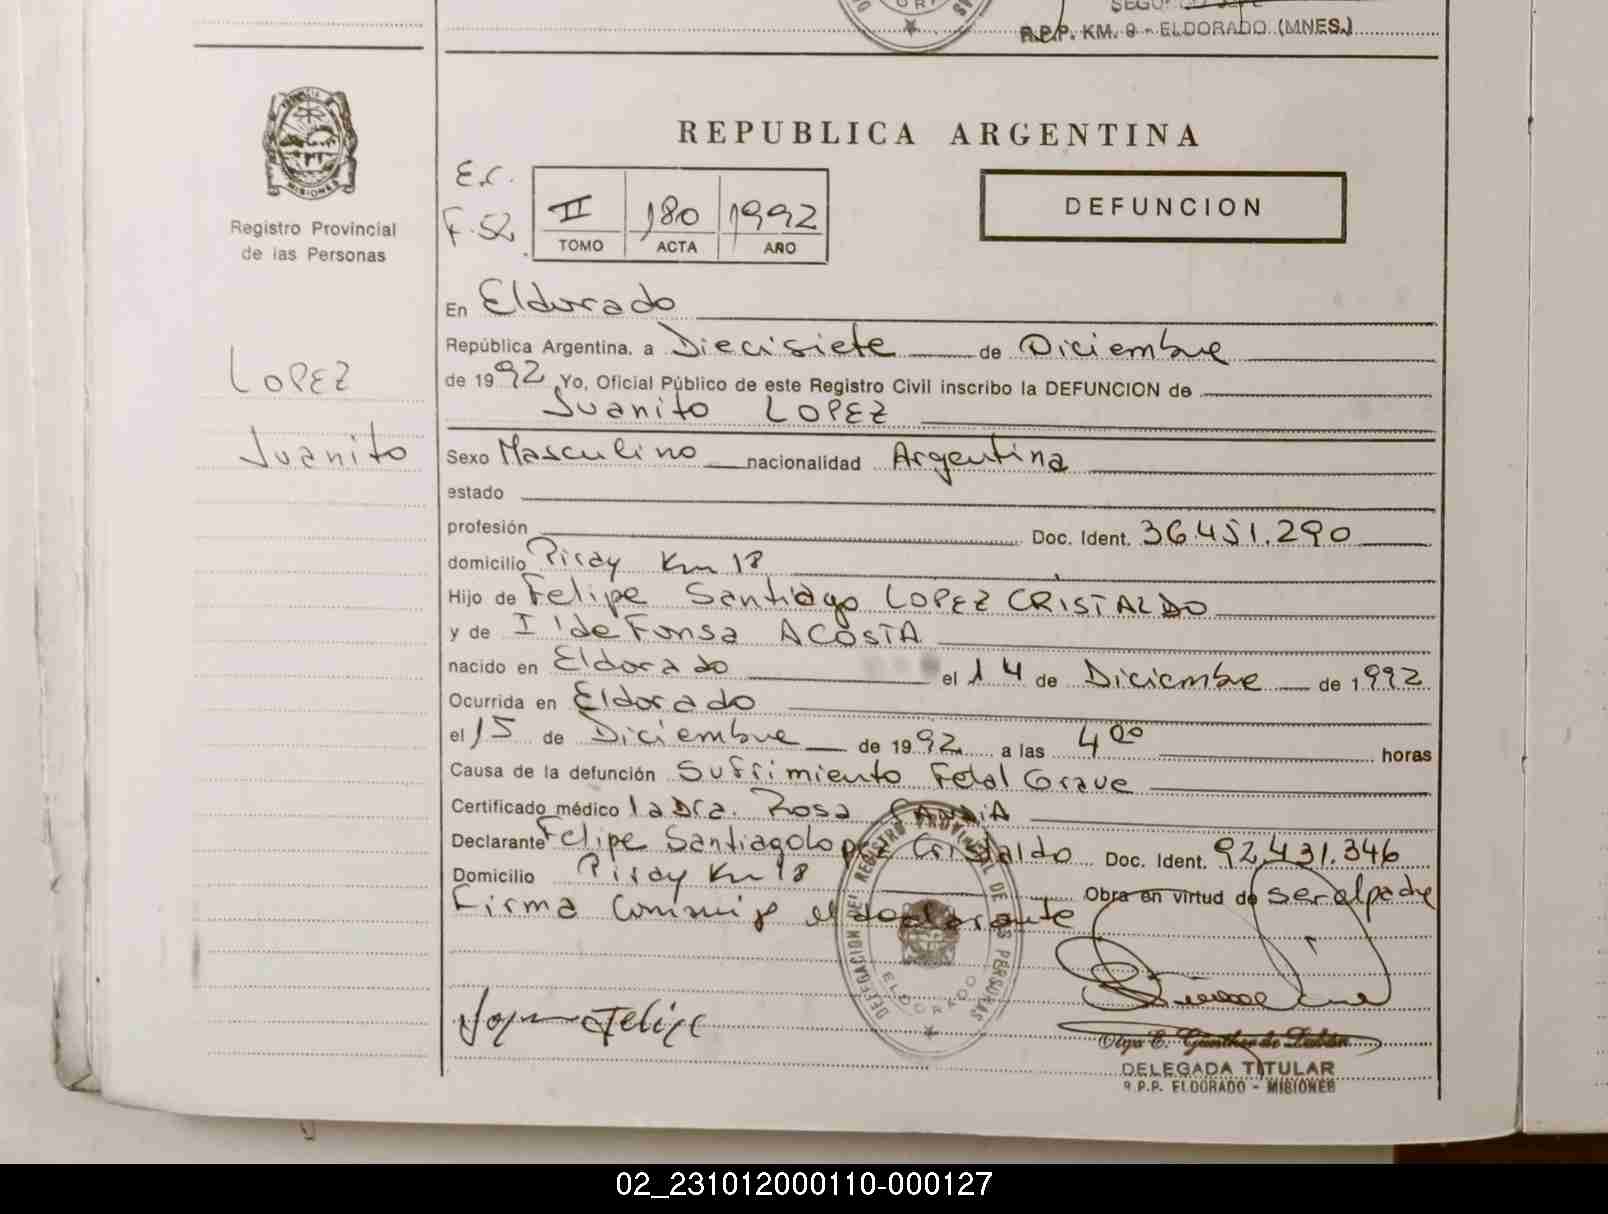 R.P.P. KM. 9 - ELDORADO (MNES.)
PROVINCIA DE
MISIONES
Registro Provincial
de las Personas
LOPEZ
Juanito
REPUBLICA ARGENTINA
E.C.
F. 52
II 180 1992
TOMO ACTA AÑO
DEFUNCION
En Eldorado
República Argentina, a Diecisiete de Diciembre
de 1992 Yo, Oficial Público de este Registro Civil inscribo la DEFUNCION de
Juanito LOPEZ
Sexo Masculino nacionalidad Argentina
estado
profesión Doc. Ident. 36.451.290
domicilio Piray Km 18
Hijo de Felipe Santiago LOPEZ CRISTALDO
y de Ildefonsa ACOSTA
nacido en Eldorado el 14 de Diciembre de 1992
Ocurrida en Eldorado
el 15 de Diciembre de 1992 a las 4 00 horas
Causa de la defunción Sufrimiento Fetal Grave
Certificado médico la Dra. Rosa CANDIA
Declarante Felipe Santiago Lopez Cristaldo Doc. Ident. 92.431.346
Domicilio Piray Km 18 Obra en virtud de ser el padre
Firma conmigo el declarante
DELEGACION DEL REGISTRO PROVINCIAL DE LAS PERSONAS
ELDORADO
Felipe
Olga E. Günther de
DELEGADA TITULAR
R.P.P. ELDORADO - MISIONES
02_231012000110-000127